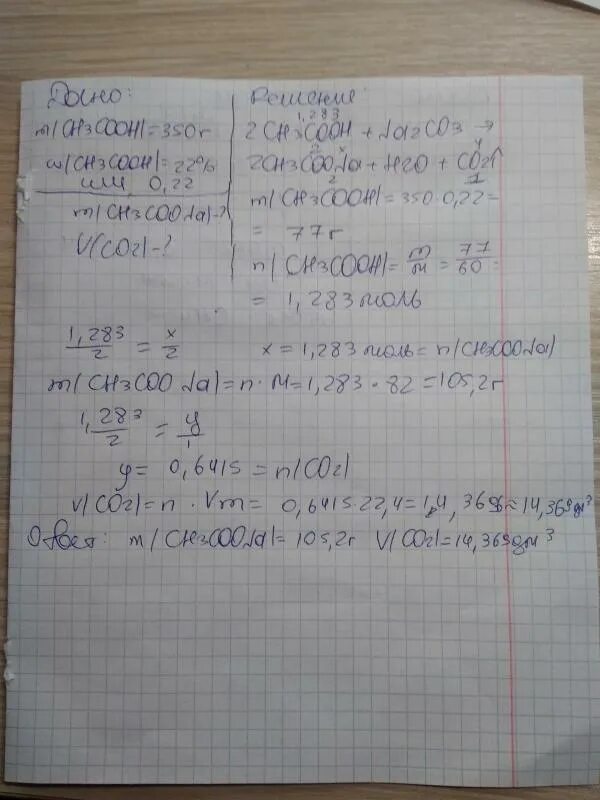 Дано:
m(CH3COOH)=350г
w(CH3COOH)=22%
или 0,22
m(CH3COONa)-?
V(CO2)-?
Решение:
1,283
2CH3COOH + Na2CO3 →
2 x y
2CH3COONa + H2O + CO2↑
2 1
m(CH3COOH)=350·0,22=
= 77г
n(CH3COOH)= m/M = 77/60 =
= 1,283 моль
1,283/2 = x/2 x = 1,283 моль = n(CH3COONa)
m(CH3COONa)=n·M=1,283·82=105,2г
1,283/2 = y/1
y= 0,6415 = n(CO2)
V(CO2)=n·Vm= 0,6415·22,4=14,3696≈14,369дм³
Ответ: m(CH3COONa)=105,2г V(CO2)=14,369дм³